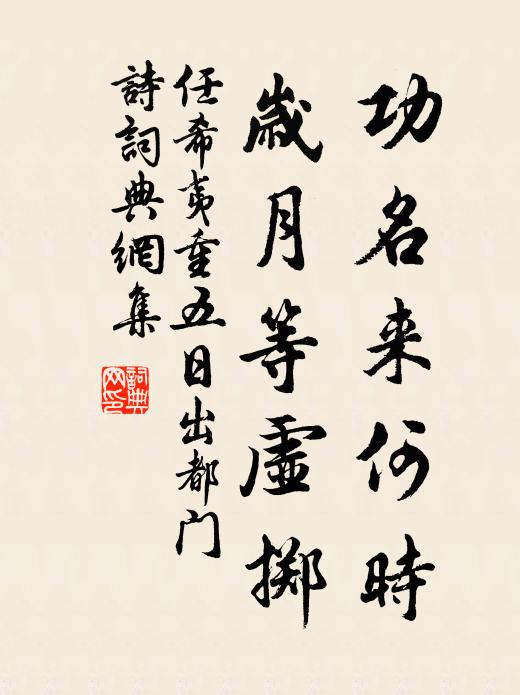 功名来何時
歳月等虛擲
任希夷重五日出都门
詩詞典網集
詞典网印